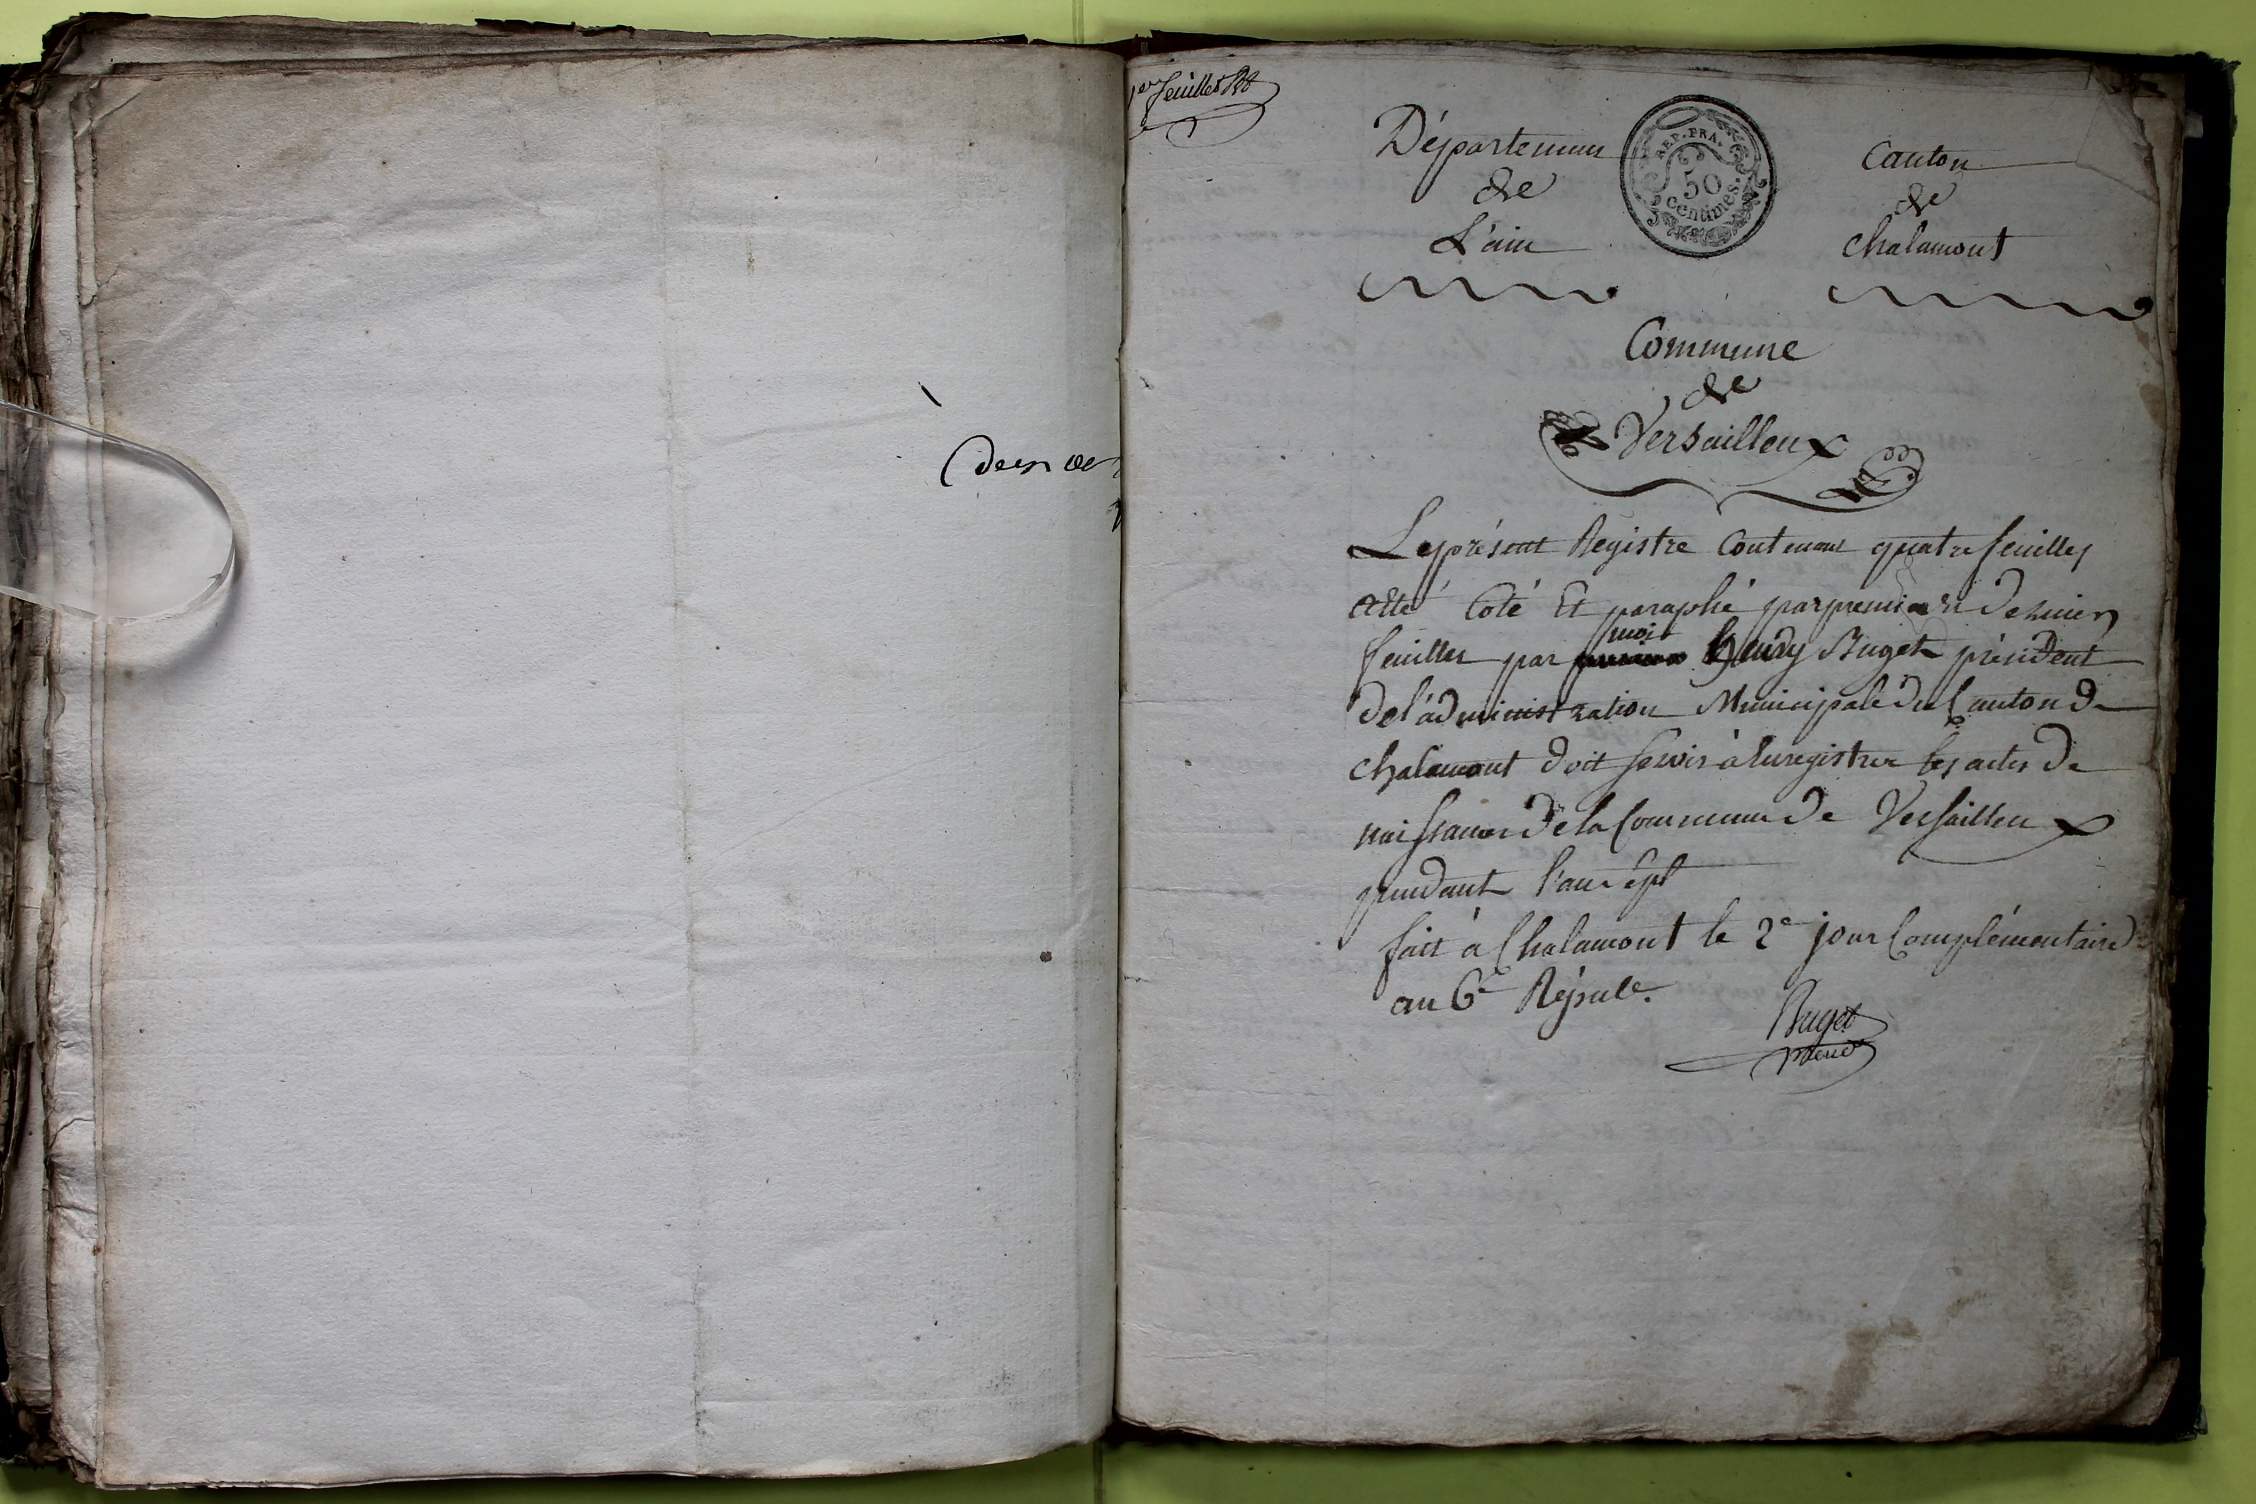 1er feuillet
Département
de
L'ain
REP. FRA.
50
centimes.
Canton
de
Chalamont
Commune
de
Versailleux
Le présent Registre Contenant quatre feuilles
a Eté Coté Et paraphé par premier Et dernier
feuillet par moi henry Buget président
de l'administration Municipale du Canton de
Chalamont doit servir à Enregistrer les actes de
naissance de la Commune de Versailleux
pendant l'an sept
fait à Chalamont le 2e jour Complémentaire
an 6e Républe.
Buget